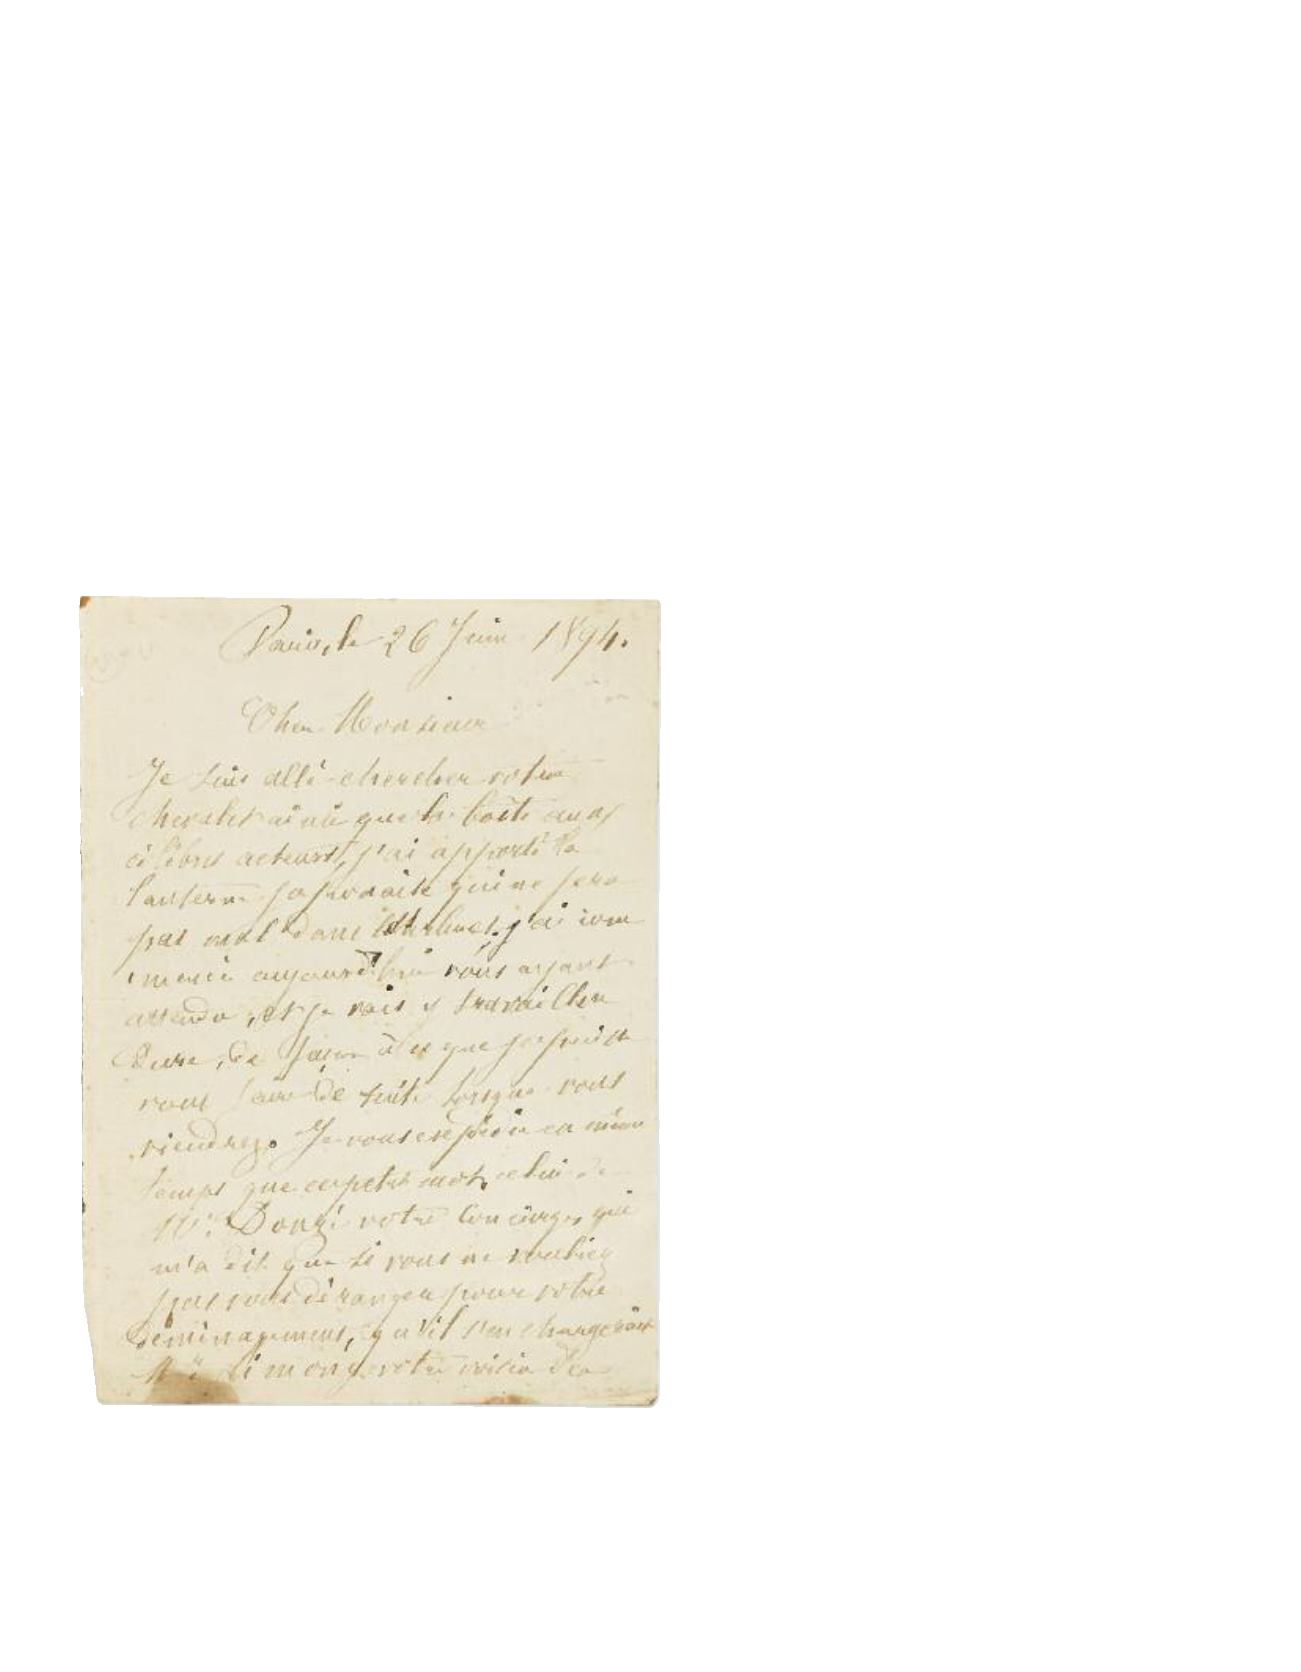 Paris, le 26 Juin 1894.
Cher Monsieur
Je suis allé chercher votre
chevalet ainsi que la boîte aux
célèbres acteurs, j'ai apporté la
lanterne japonaise qui ne fera
pas mal dans j'ai com
mencé aujourd'hui vous ayant
attendu, et je vais y travailler
dure, de façon à ce que je puisse
vous de suite lorsque vous
viendrez. Je vous expédie en même
temps que ce petit mot, celui de
Mr votre concierge, qui
m'a dit que si vous ne vouliez
pas vous déranger pour votre
déménagement, qu'il s'en chargerait
votre voisin d'en